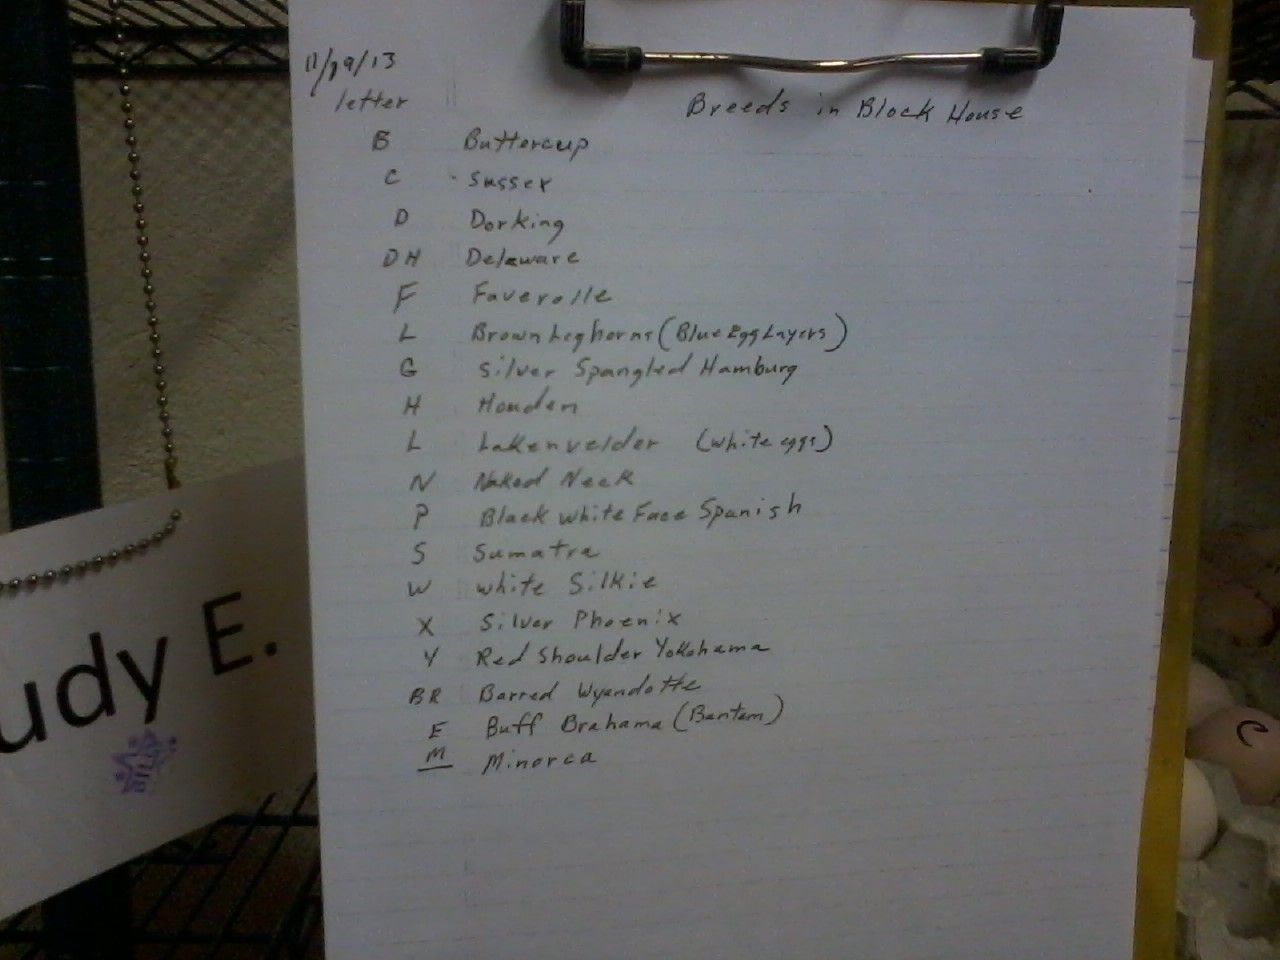 11/19/13
letter Breeds in Block House
B Buttercup
C Sussex
D Dorking
DH Delaware
F Faverolle
L Brown Leghorns (Blue Egg Layers)
G Silver Spangled Hamburg
H Houden
L Lakenvelder (white eggs)
N Naked Neck
P Black White Face Spanish
S Sumatra
W white Silkie
X Silver Phoenix
Y Red Shoulder Yokohama
BR Barred Wyandotte
E Buff Brahama (Bantam)
M Minorca
udy E.
C